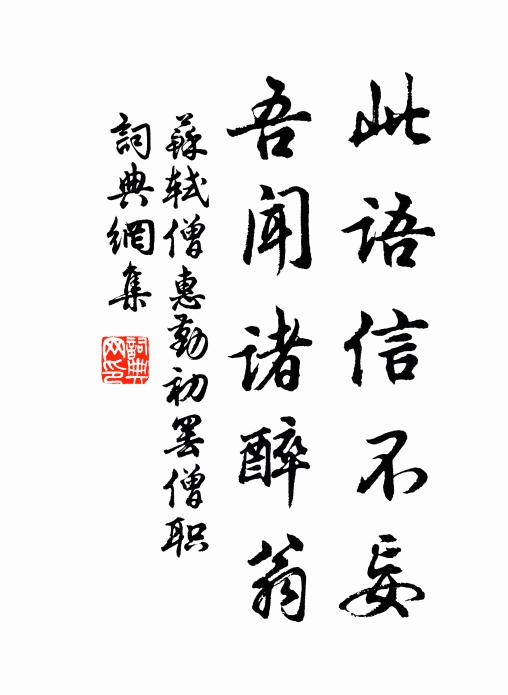 此语信不妄
吾闻诸醉翁
苏轼僧惠勤初罢僧职
詞典網集
詞典网印